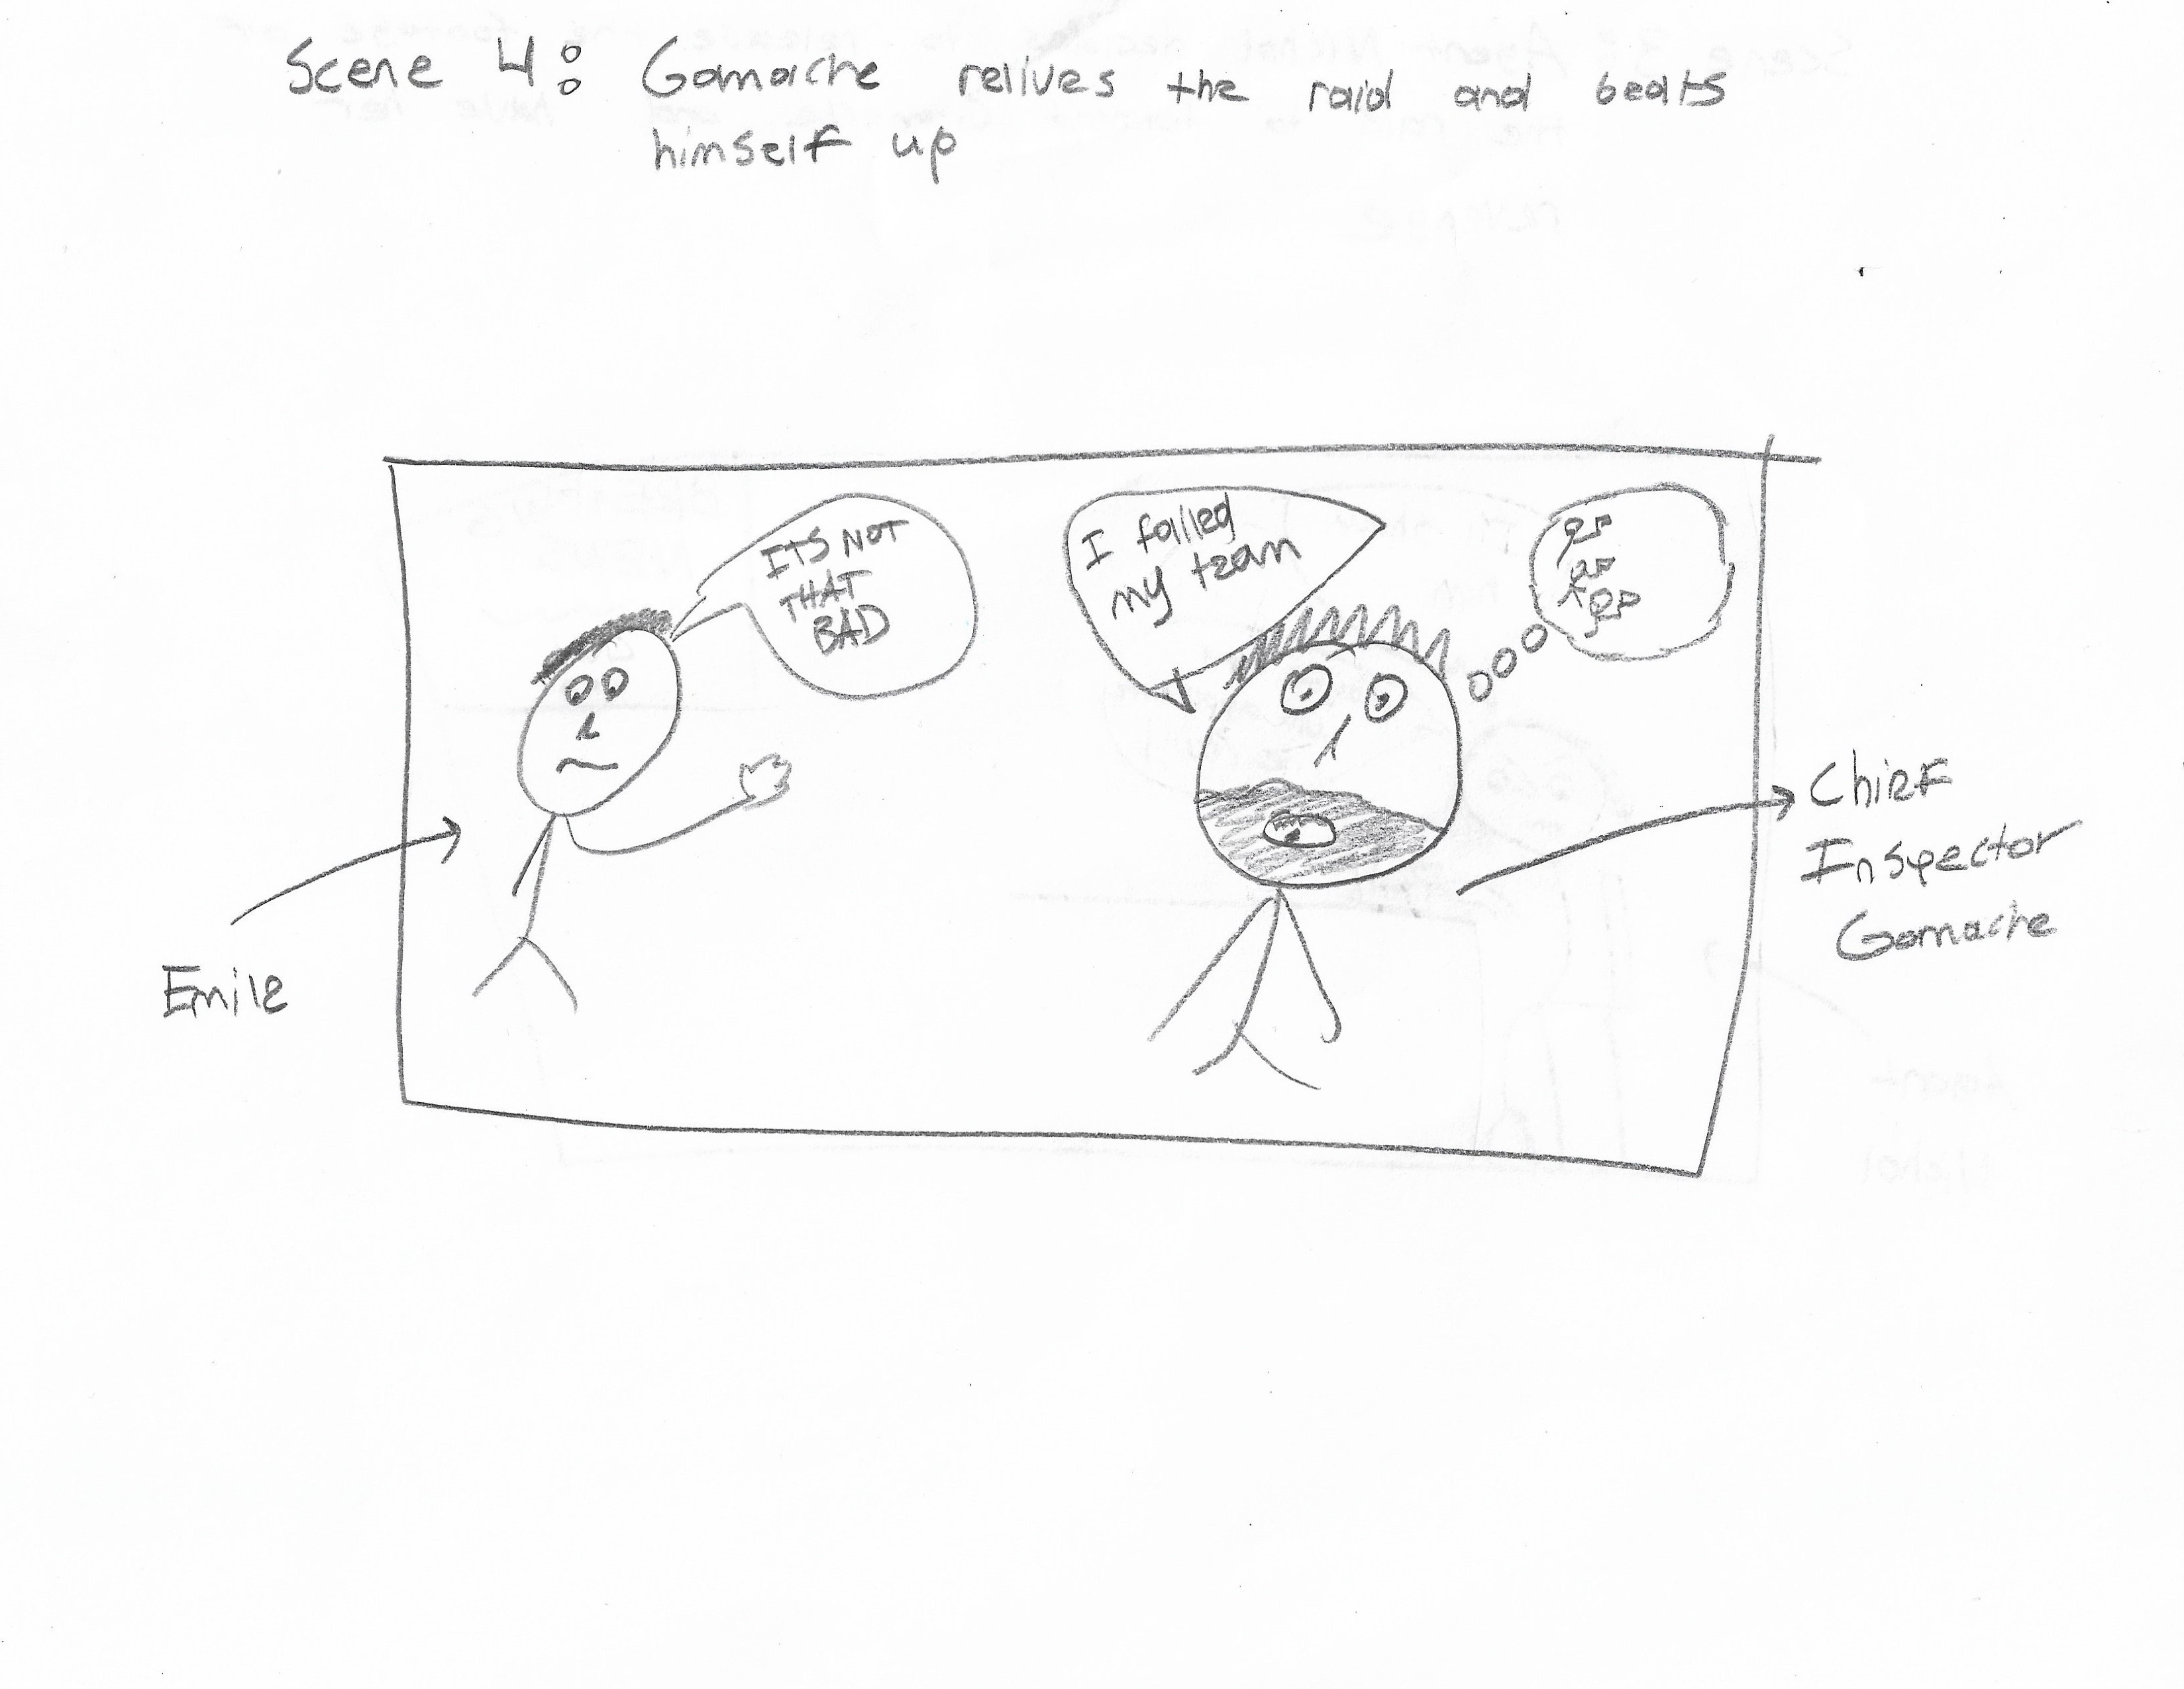 Scene 4: Gamache relives the raid and beats
himself up
ITS NOT
THAT
BAD
I failed
my team
Emile
Chief
Inspector
Gamache